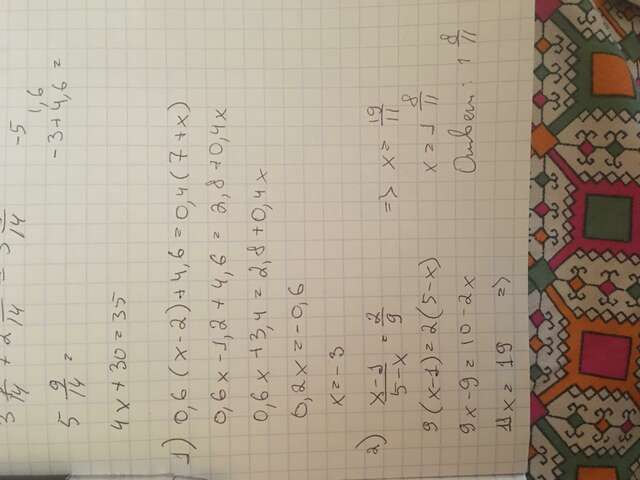 3 /14 + 2 /14 = 3 /14
-5
1,6
5 9/14 =
-3+4,6=
4x+30=35
1) 0,6(x-2)+4,6=0,4(7+x)
0,6x-1,2+4,6=2,8+0,4x
0,6x+3,4=2,8+0,4x
0,2x=-0,6
x=-3
2) x-1/5-x = 2/9
=> x= 19/11
9(x-1)=2(5-x)
x=1 8/11
9x-9=10-2x
Ответ: 1 8/11
11x=19 =>